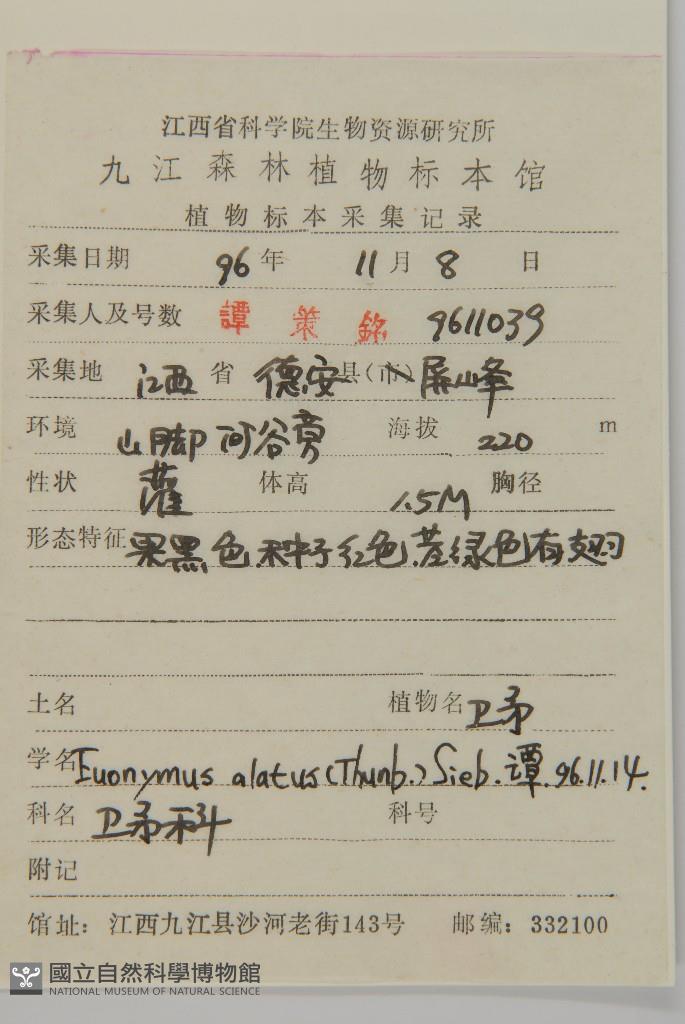 江西省科学院生物资源研究所
九江森林植物标本馆
植物标本采集记录
采集日期 96年 11月 8 日
采集人及号数 譚策銘 9611039
采集地 江西省 德安县(市) 屏山峰
环境 山脚河谷旁 海拔 220 m
性状 灌 体高 1.5M 胸径
形态特征 果黑色.种子红色.茎绿色有翅
土名 植物名 卫矛
学名 Euonymus alatus (Thunb.) Sieb. 谭.96.11.14.
科名 卫矛科 科号
附记
馆址：江西九江县沙河老街143号 邮编：332100
國立自然科學博物館
NATIONAL MUSEUM OF NATURAL SCIENCE